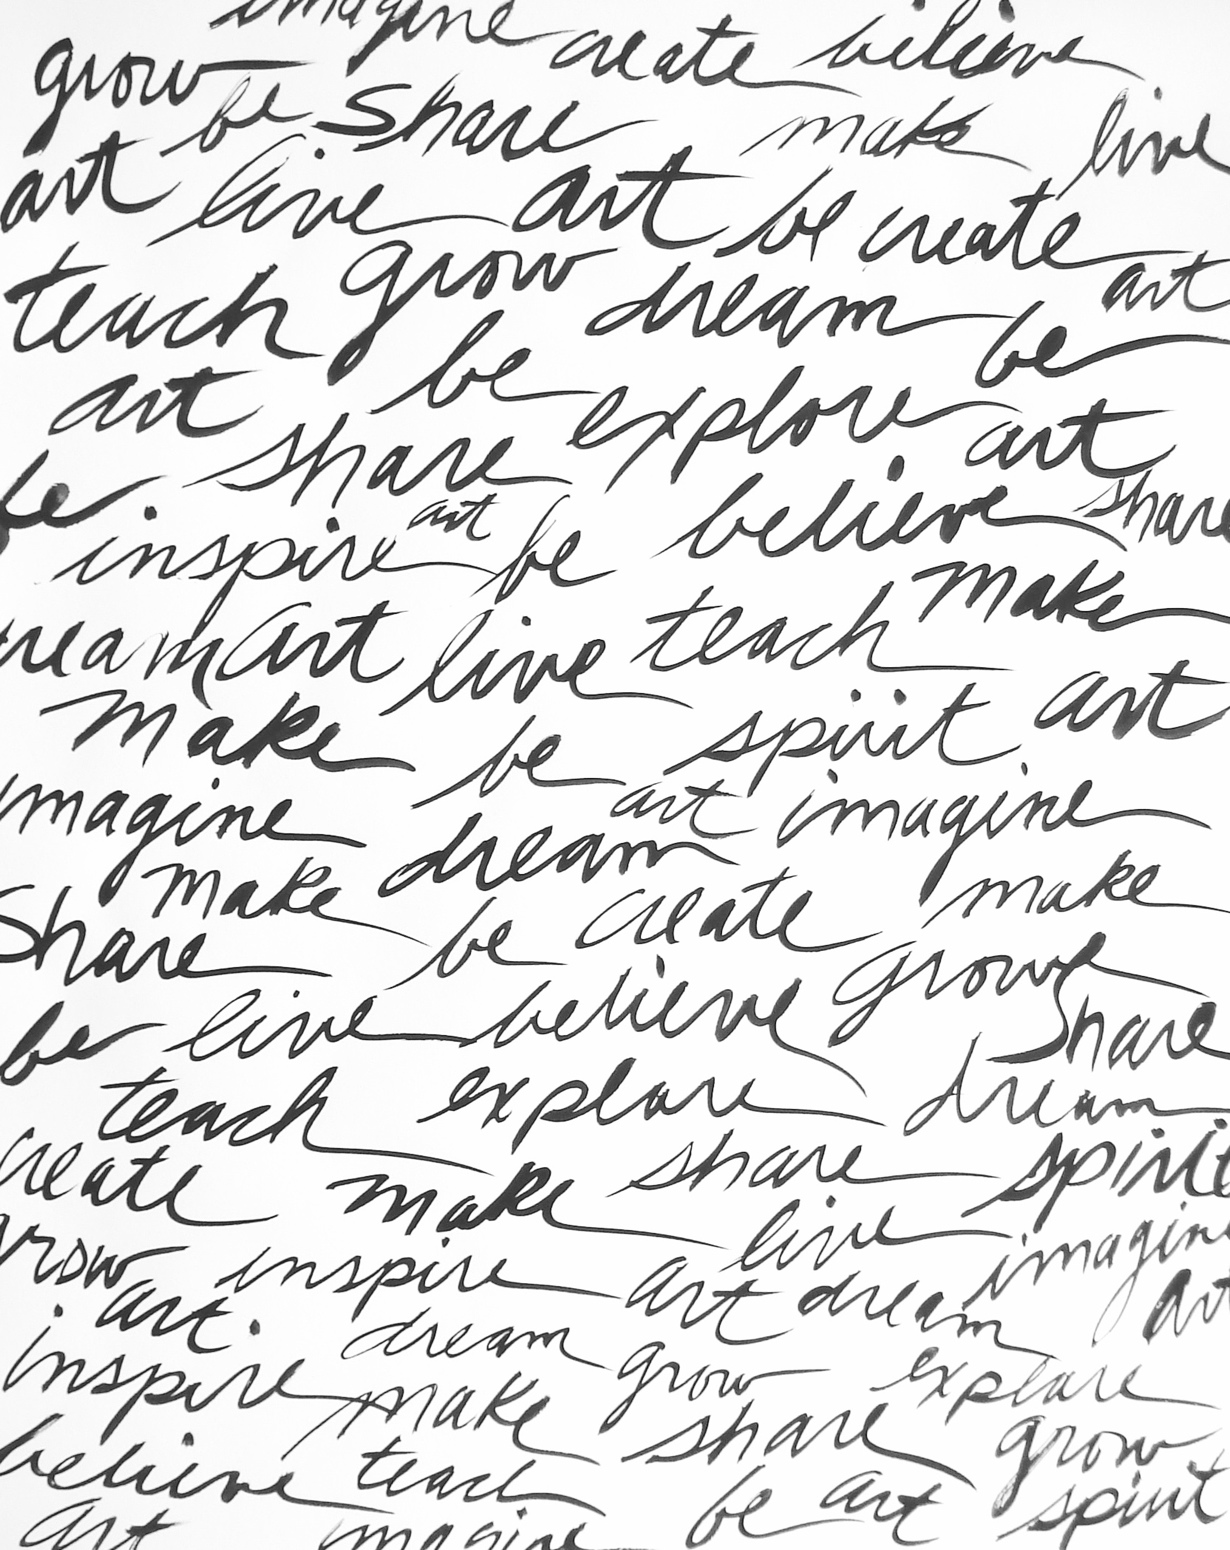 imagine create believe
grow be share make live
art live art be create
teach grow dream art
art be explore be
be. share art
inspire art be believe share
dream art live teach make
make be spirit art
imagine art imagine
make dream make
share be create grow
be live believe share
teach explore dream
create make share spirit
grow inspire live imagine
art. art dream art
inspire dream grow explore
make share grow
believe teach be art spirit
art imagine